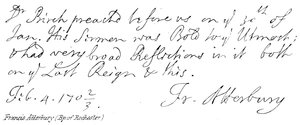 Dr Birch preached before us on yᵉ 30ᵗʰ of
Jan. His Sermon was Bold to yᵉ Utmost;
& had very broad Reflections in it both
on yᵉ Last Reign & this.
Feb. 4. 170 2/3.
Fr. Atterbury
Francis Atterbury (Bp of Rochester)